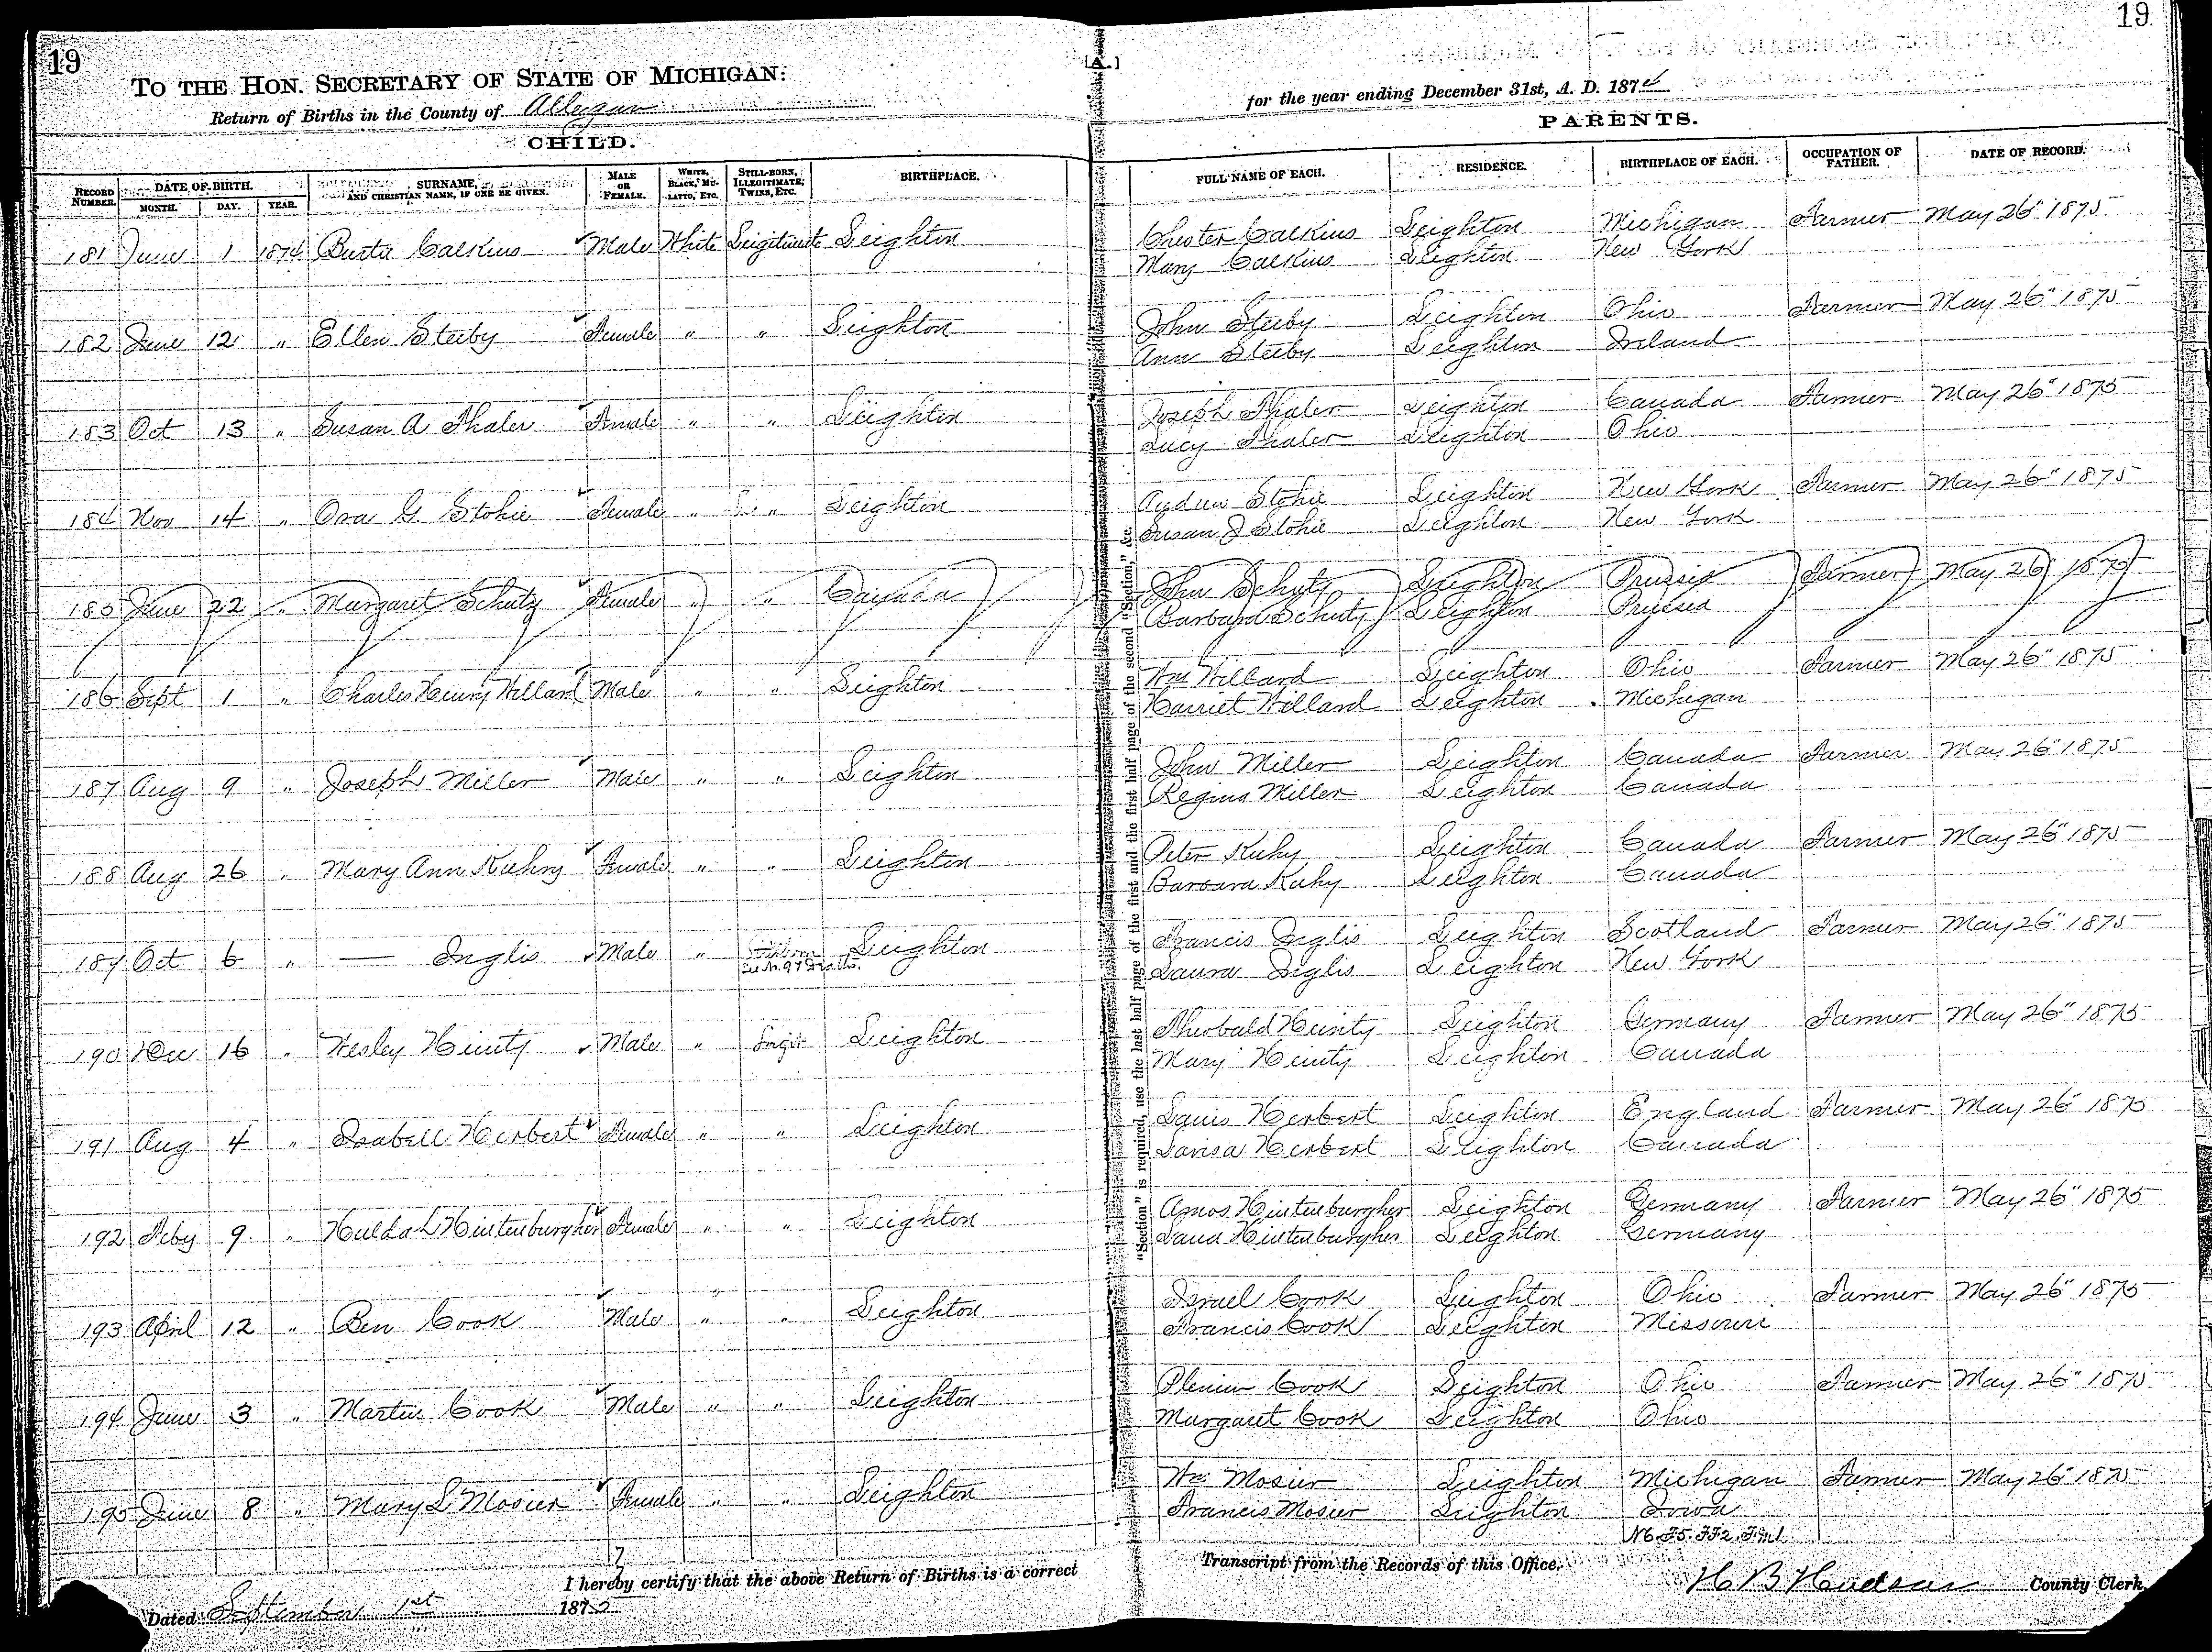 19
19
TO THE HON. SECRETARY OF STATE OF MICHIGAN:
[A.]
Return of Births in the County of Allegan
for the year ending December 31st, A. D. 1874
CHILD.
PARENTS.
RECORD NUMBER. DATE OF BIRTH. MONTH. DAY. YEAR. SURNAME, AND CHRISTIAN NAME, IF ONE BE GIVEN. MALE OR FEMALE. WHITE, BLACK, MULATTO, ETC. STILL-BORN, ILLEGITIMATE, TWINS, ETC. BIRTHPLACE. FULL NAME OF EACH. RESIDENCE. BIRTHPLACE OF EACH. OCCUPATION OF FATHER. DATE OF RECORD.
181 June 1 1874 Burta Calkins Male White Legitimate Leighton Chester Calkins Leighton Michigan Farmer May 26" 1875
Mary Calkins Leighton New York
182 June 12 " Ellen Steeby Female " " Leighton John Steeby Leighton Ohio Farmer May 26" 1875
Ann Steeby Leighton Ireland
183 Oct 13 " Susan A Thaler Female " " Leighton Joseph Thaler Leighton Canada Farmer May 26" 1875
Lucy Thaler Leighton Ohio
184 Nov 14 " Ora G. Stokie Female " " Leighton Andrew Stokie Leighton New York Farmer May 26" 1875
Susan J Stokie Leighton New York
185 June 22 " Margaret Schutz Female " " Canada John Schutz Leighton Prussia Farmer May 26 1875
Barbara Schutz Leighton Prussia
186 Sept 1 " Charles Henry Willard Male " " Leighton Wm Willard Leighton Ohio Farmer May 26" 1875
Harriet Willard Leighton Michigan
187 Aug 9 " Joseph Miller Male " " Leighton John Miller Leighton Canada Farmer May 26" 1875
Regina Miller Leighton Canada
188 Aug 26 " Mary Ann Kuhny Female " " Leighton Peter Kuhy Leighton Canada Farmer May 26" 1875
Barbara Kuhy Leighton Canada
189 Oct 6 " — Inglis Male " Leighton Francis Inglis Leighton Scotland Farmer May 26" 1875
Laura Inglis Leighton New York
190 Dec 16 " Wesley Heinty Male " Legit Leighton Theobald Heinty Leighton Germany Farmer May 26" 1875
Mary Heinty Leighton Canada
191 Aug 4 " Isabell Herbert Female " " Leighton Louis Herbert Leighton England Farmer May 26" 1875
Lavisa Herbert Leighton Canada
192 Feby 9 " Hulda L Hintenburgher Female " " Leighton Amos Hintenburgher Leighton Germany Farmer May 26" 1875
Lana Hintenburgher Leighton Germany
193 April 12 " Ben Cook Male " " Leighton Israel Cook Leighton Ohio Farmer May 26" 1875
Francis Cook Leighton Missouri
194 June 3 " Martin Cook Male " " Leighton Cook Leighton Ohio Farmer May 26" 1875
Margaret Cook Leighton Ohio
195 June 8 " Mary L Mosier Female " " Leighton Wm Mosier Leighton Michigan Farmer May 26" 1875
Francis Mosier Leighton Iowa
"Section" is required, use the last half page of the first and the first half page of the second "Section," &c.
I hereby certify that the above Return of Births is a correct Transcript from the Records of this Office.
Dated September 1st 1875 H B Hudson County Clerk.